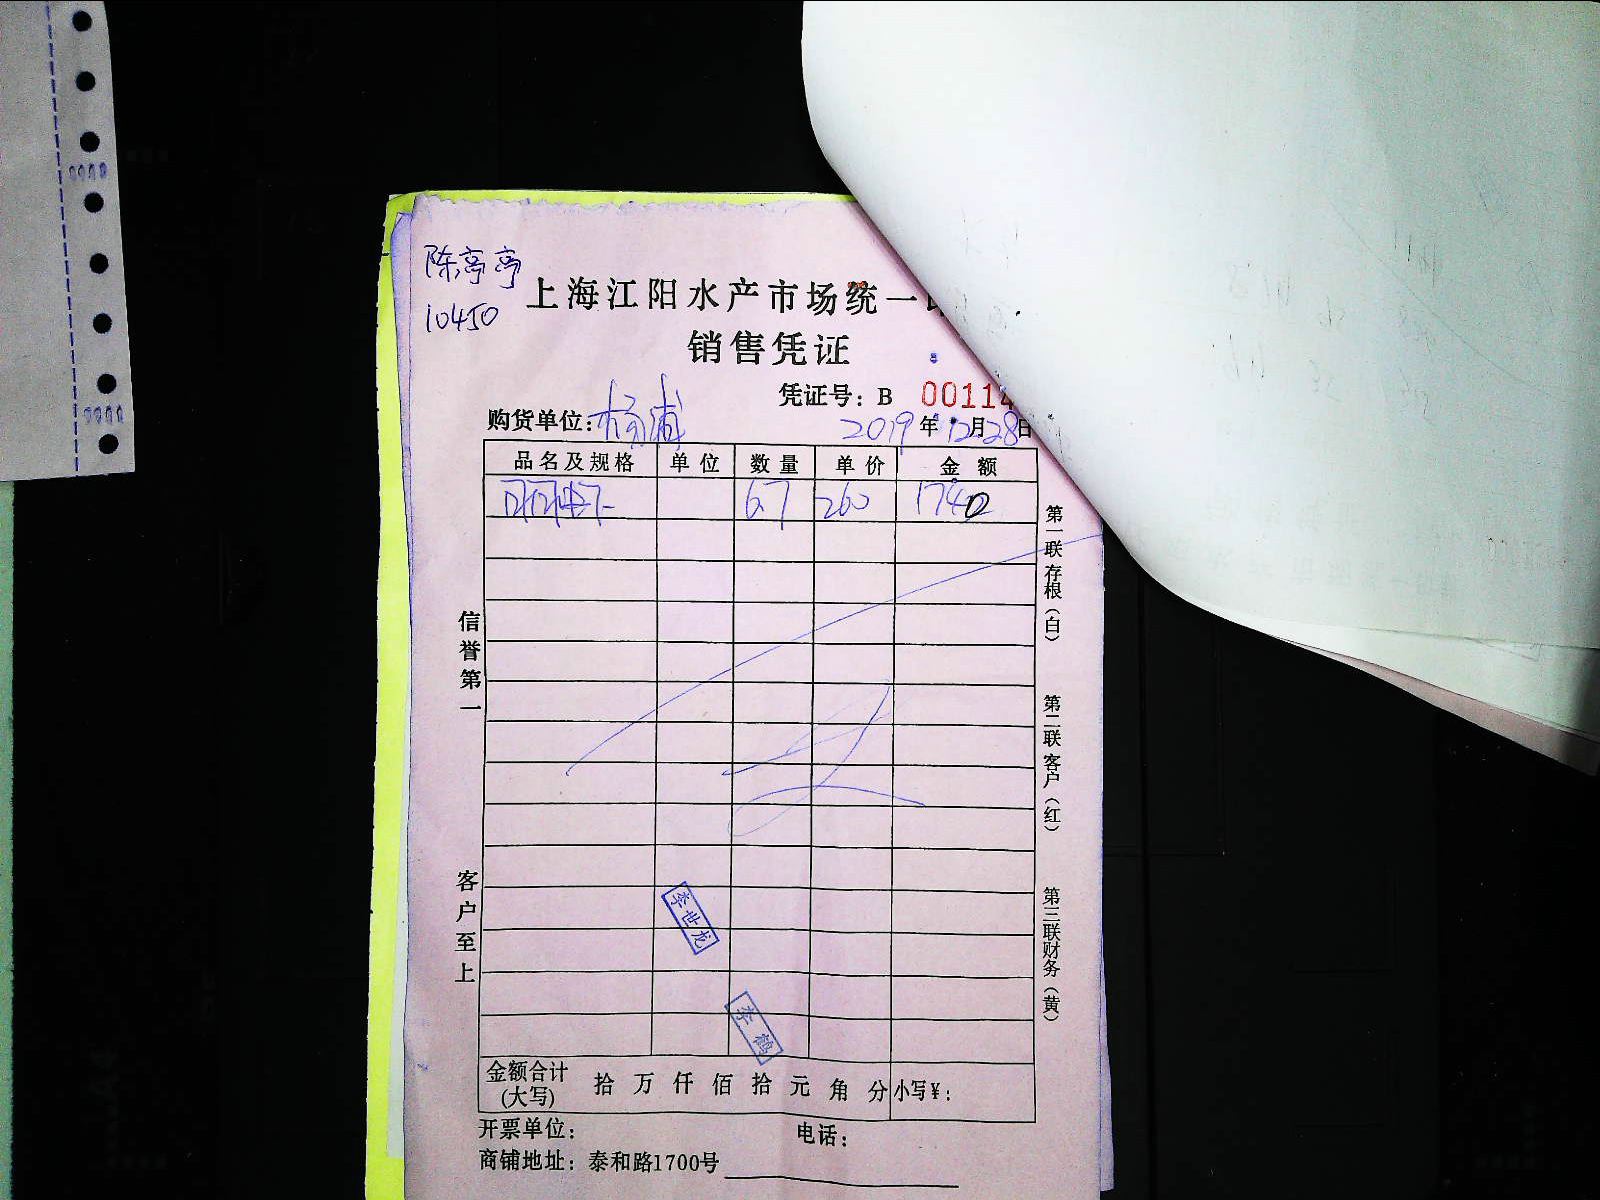 陈亭亭
10450
上海江阳水产市场统一
销售凭证
凭证号：B 00114
购货单位：杨浦 2019年12月28日
品名及规格 单位 数量 单价 金额
6.7 260 1740
第一联存根（白）
第二联客户（红）
第三联财务（黄）
信誉第一
客户至上
李世龙
李鹤
金额合计(大写) 拾万仟佰拾元角分 小写¥：
开票单位： 电话：
商铺地址：泰和路1700号